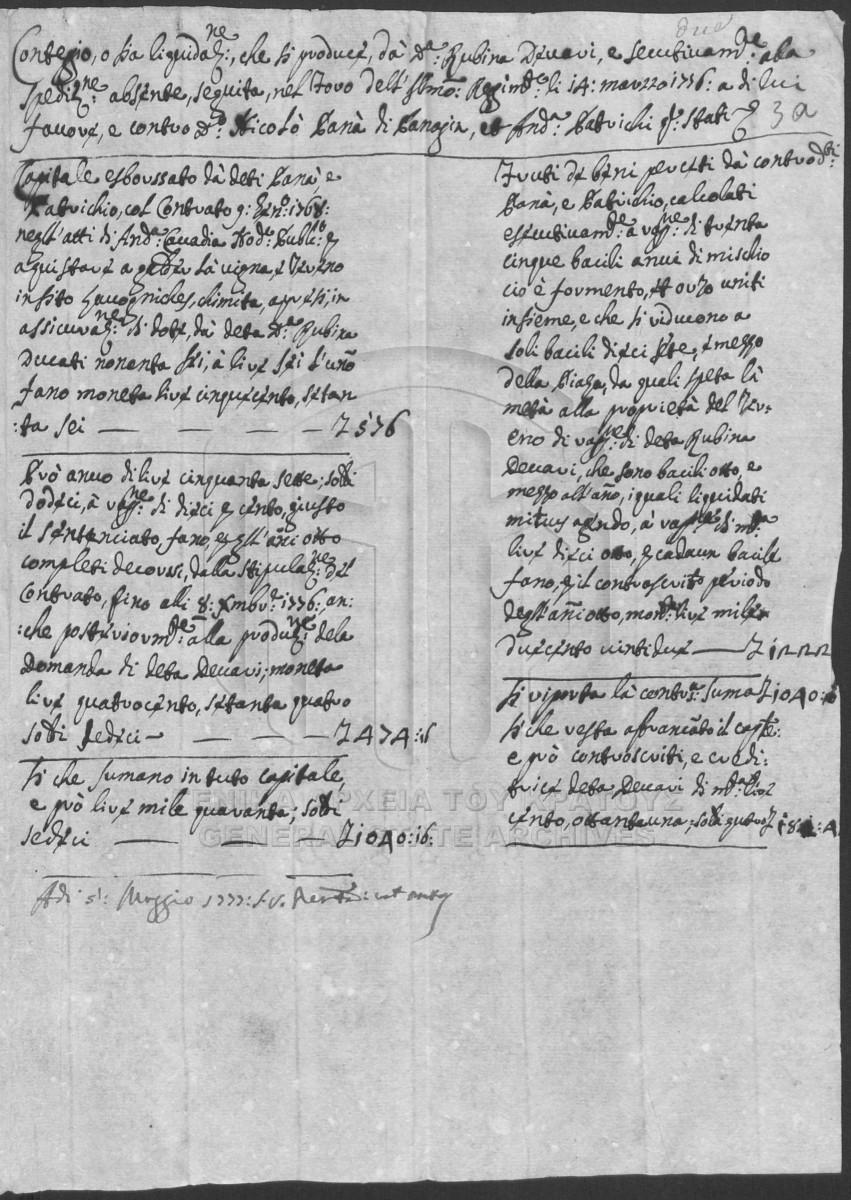 due
Contegio, o sia liquidaz:ne, che si produce, dà Da: Rubina Devari, e secutivamte: ala
Spediz:ne absente, seguita, nel Foro dell' Illmo: Reggimto: li 14: marzzo 1776: a di lui
favore, e contro Dno: Nicolò Panà di Panagin, et Anda: Patrichi qm: Stati 3a
Capitale esboussato dà deti Panà, e
Patrichio, col Contrato 9: Gen:o 1768:
negl'atti di Anda: Cavadia Nodo: Publico: p
aquistare a goder là vigna, e Tereno
insito
assicuraz:ne di dote, dà deta Da: Rubina
Ducati nonanta sei, à lire sei l'uno
fano moneta lire cinquecento, setan
:ta sei — — — — L 576
Prò anuo di lire cinquanta sette; soldi
dodeci, à rag:ne di dieci p cento, giusto
il sentenciato, fano, p gl'ani otto
completi decorsi, dalla stipulaz:ne del
Contrato, fino alli 8: Xmbre: 1776: an:
:che posteriormte: alla produz:ne dela
Domanda di deta Devari; moneta
lire quatrocento, setanta quatro
soldi sedeci — — — — L 474:16
Si che sumano in tuto capitale,
e prò lire mile quaranta; soldi
sedeci — — — L 1040:16:
Fruti de beni perceti dà controdti:
Panà, e Patrichio, calcolati
esecutivamte: à rag:ne di trenta
cinque bacili anui di mischio
cio è formento, et orzo uniti
insieme, e che si riducono a
soli bacili dieci sete, e mezzo
della Piaza, da quali speta là
metà alla proprietà del Te:
reno di rag:ne di deta Rubina
Devari, che sono bacili otto, e
mezzo all'ano, i quali liquidati
à rag:ne di mta
lire dieci otto, p cadaun bacile
fano, p il controscrito periodo
degl'ani otto, monda: lire mile
duecento vintidue — L 1222
Si riporta là contra: suma L 1040:16
Si che resta afrancato il capte:
e prò controscriti, e credi:
trice deta Devari di mta: lire
cento, ottanta una; soldi quatro L 181:4
Adi 5: Maggio 1777: S. V.